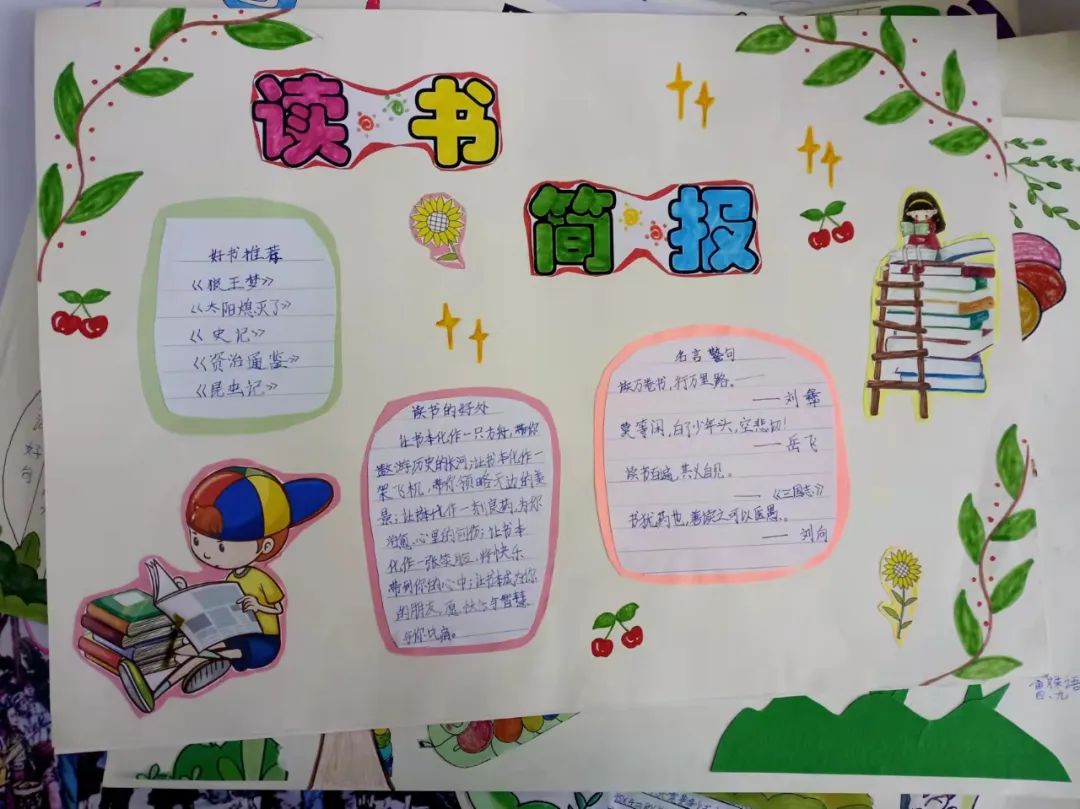 读书
简报
好书推荐
《狼王梦》
《太阳熄灭了》
《史记》
《资治通鉴》
《昆虫记》
读书的好处
让书本化作一只方舟,带你
遨游历史的长河;让书本化作一
架飞机,带你领略无边的美
景;让书本化作一剂良药,为你
治愈心里的创伤;让书本
化作一张笑脸,将快乐
带到你的心中;让书本成为你
的朋友,愿快乐与智慧
与你比肩。
名言警句
读万卷书,行万里路。
—— 刘彝
莫等闲,白了少年头,空悲切!
—— 岳飞
读书百遍,其义自见。
—— 《三国志》
书犹药也,善读之可以医愚。
—— 刘向
四、九